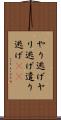 やり逃げヤ
リ逃げ遣り
逃げ